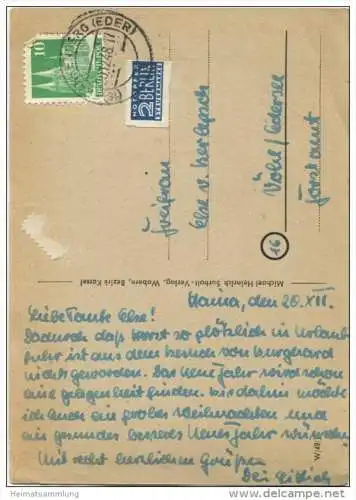 BERG (EDER)
10
DEUTSCHE POST
NOTOPFER
2 BERLIN
STEUERMARKE
Freifrau
Else v. Berlepsch
Vöhl / Edersee
Forstamt
16
Michael Heinrich Surholt-Verlag, Wabern, Bezirk Kassel
Haina, den 20. XII.
Liebe Tante Else!
Dadurch daß Horst so plötzlich in Urlaub
fuhr ist aus dem kommen von Burghard
nichts geworden. Das neue Jahr wird schon
eine gelegenheit finden. Bis dahin möchte
ich Euch ein frohes Weihnachten und
ein gesundes besseres Neues Jahr wünschen
Mit recht herzlichen Grüßen
Dei
W/49
Heimatsammlung
www.ansichtskartenversand.com